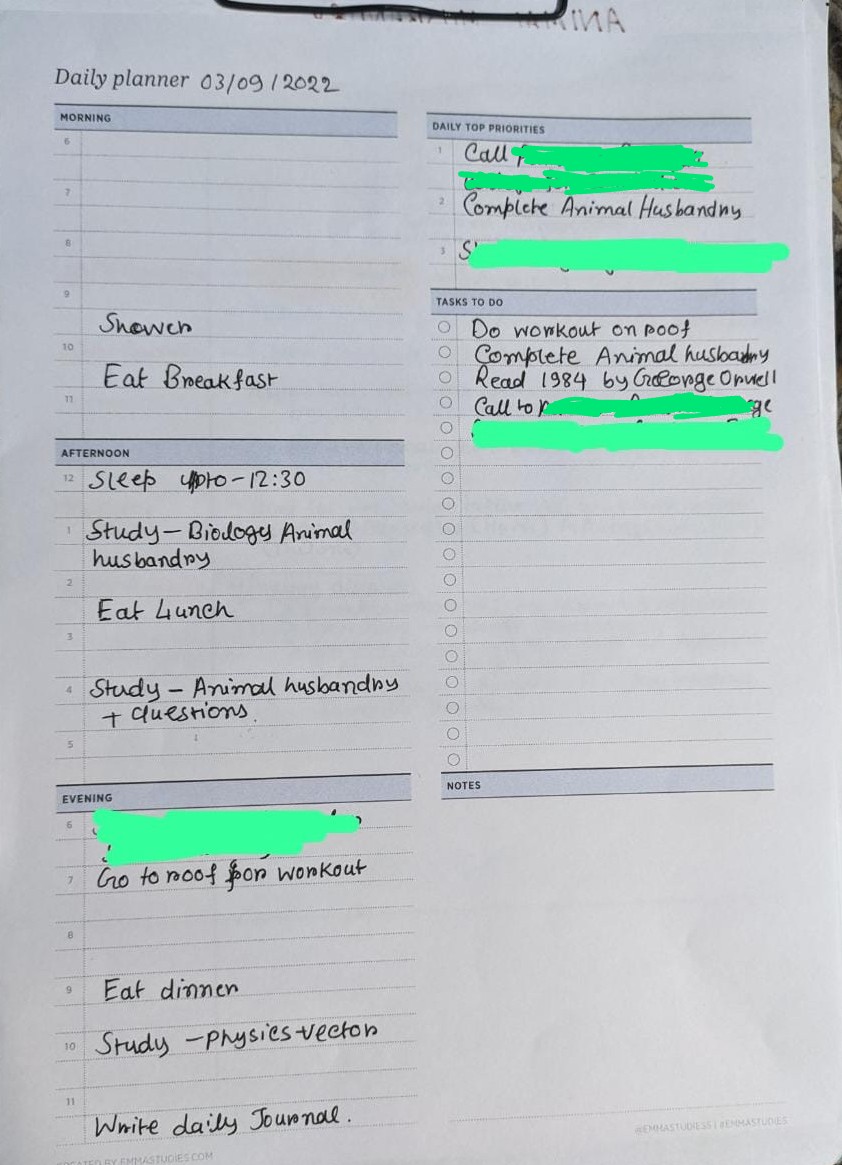 Daily planner 03/09/2022
MORNING
6
7
8
9
Shower
10
Eat Breakfast
11
AFTERNOON
12 Sleep upto-12:30
1 Study-Biology Animal
husbandry
2
Eat Lunch
3
4 Study - Animal husbandry
+ questions.
5
EVENING
6
7 Go to roof for workout
8
9 Eat dinner
10 Study -physics-vector
11
Write daily Journal.
DAILY TOP PRIORITIES
1 Call
2 Complete Animal Husbandry
3
TASKS TO DO
Do workout on roof
Complete Animal husbandry
Read 1984 by George Orwell
Call to
NOTES
@EMMASTUDIESS | #EMMASTUDIES
CREATED BY EMMASTUDIES.COM